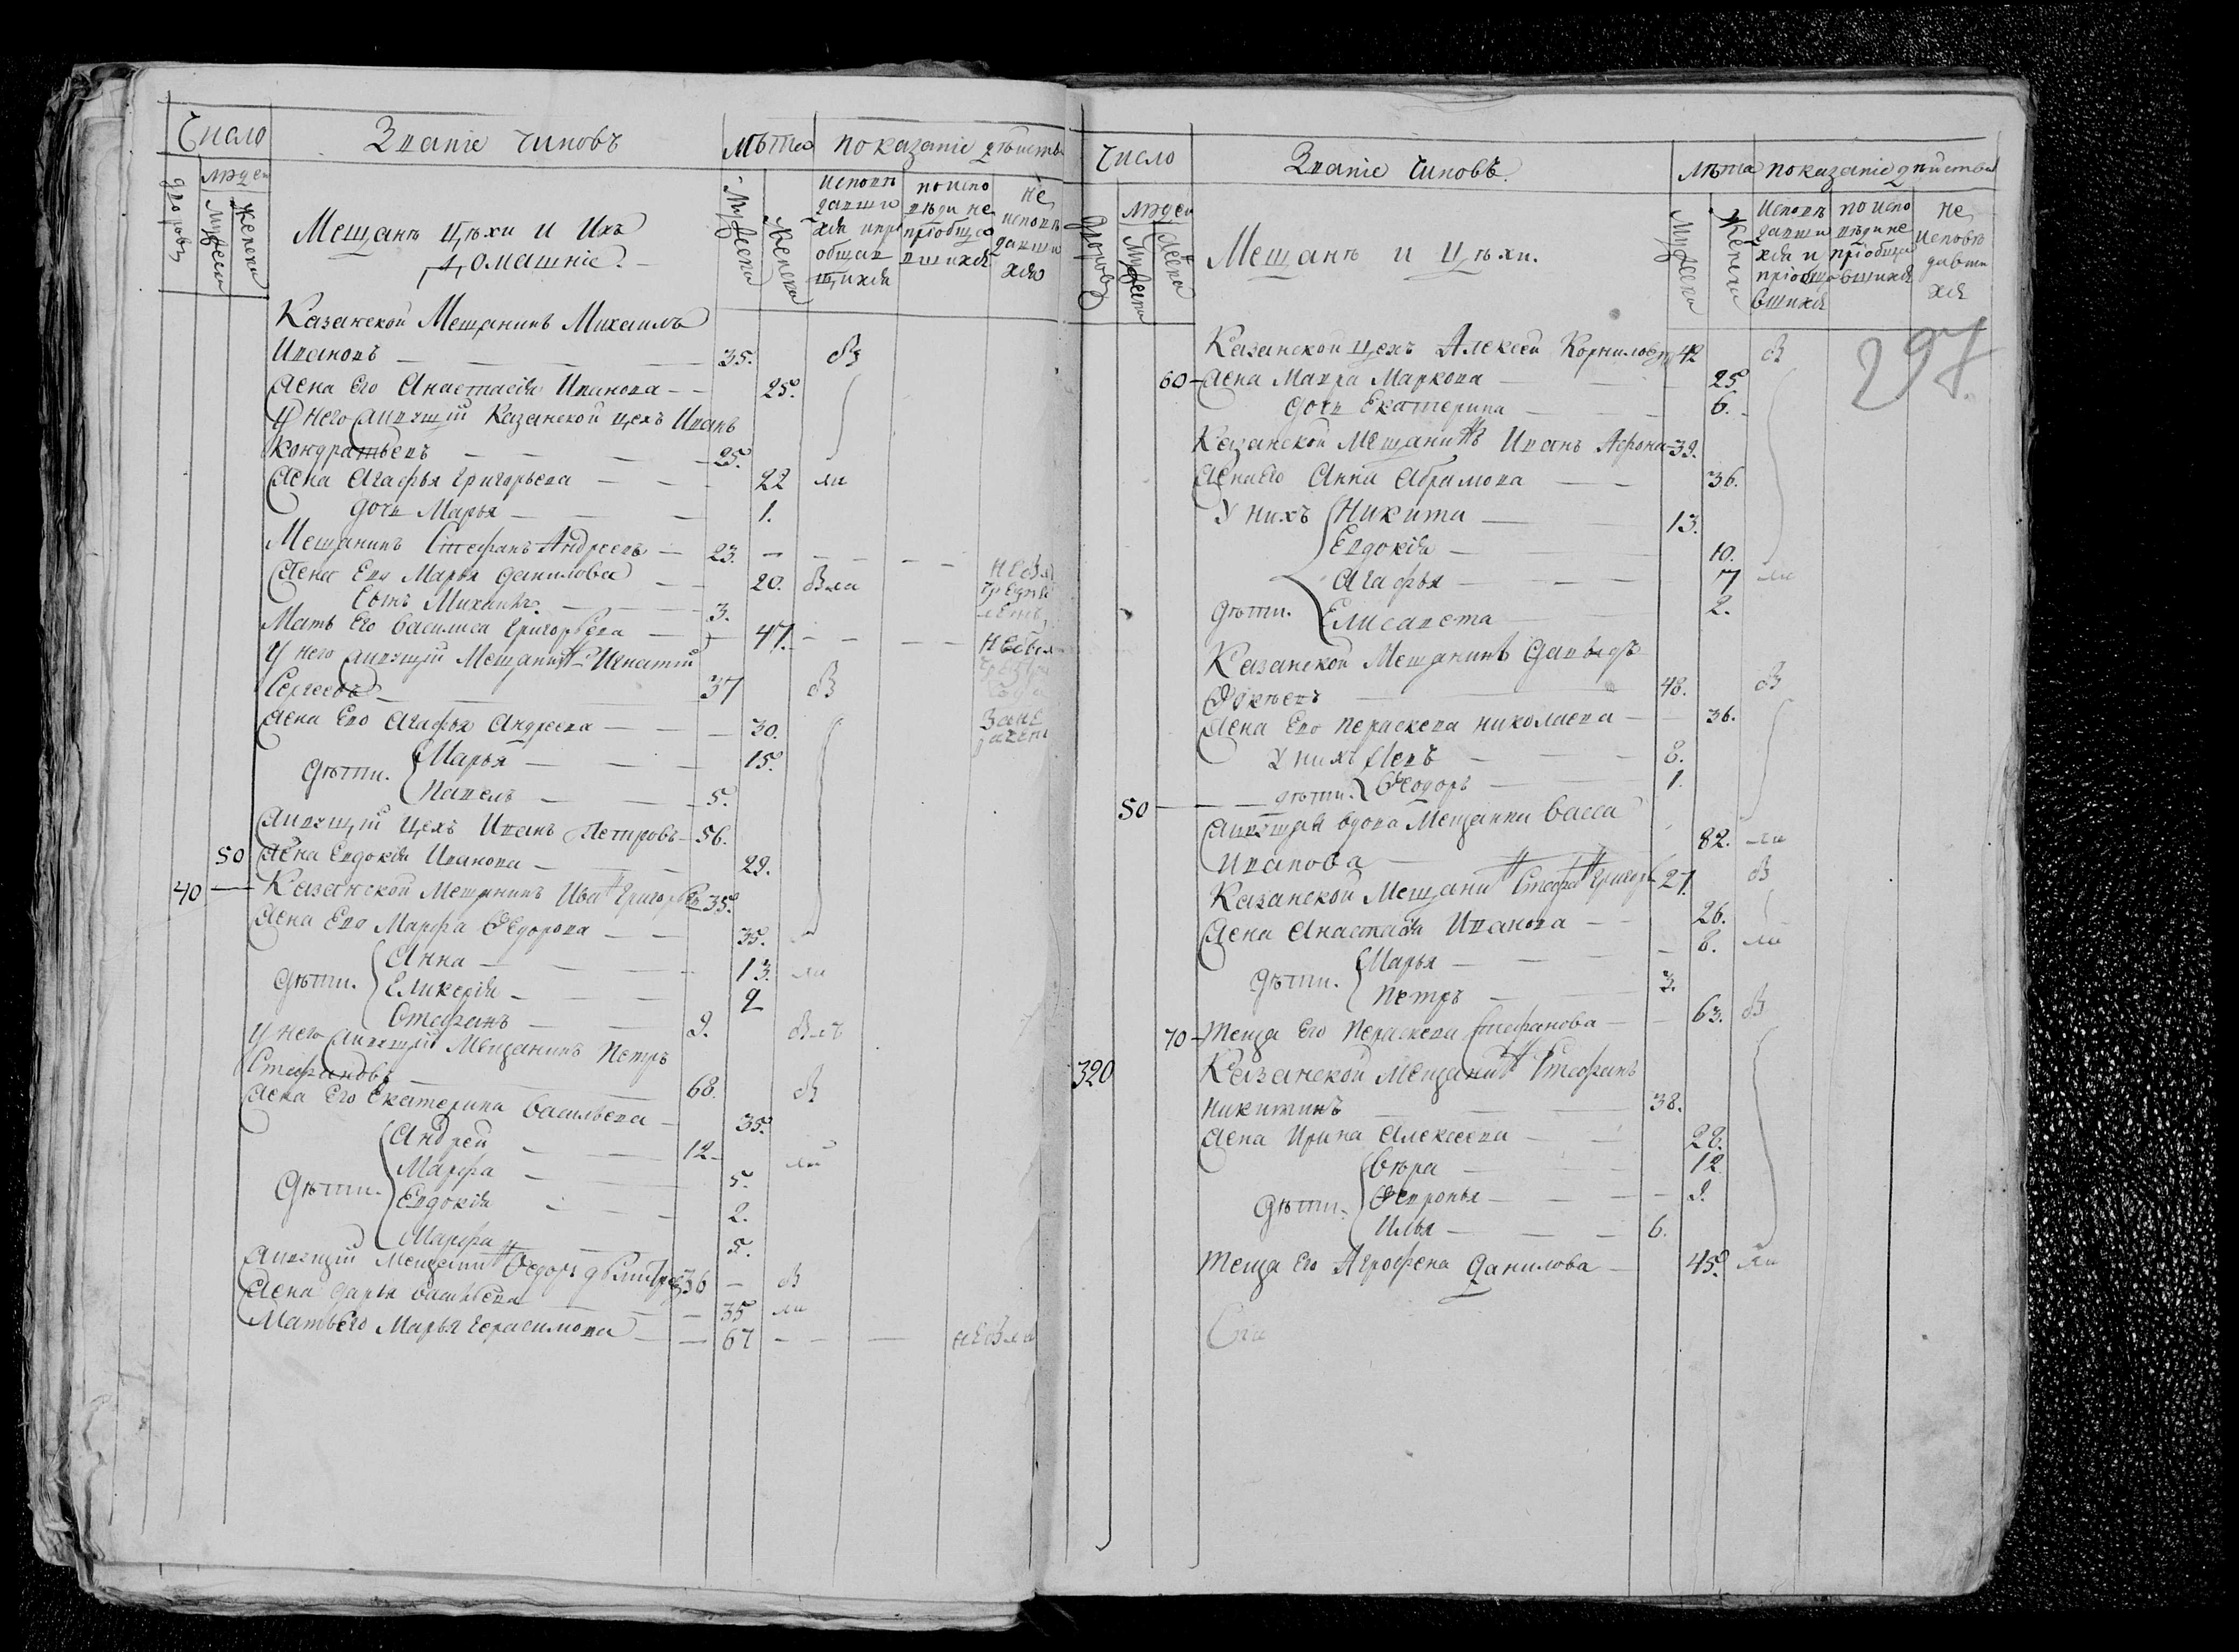 Число
Званіе чиновъ
лѣта
показаніе дѣйства
дворовъ
людей
мужеска
женска
Мещанъ цѣхи и Ихъ
Домашніе.
мужеска
женска
исповѣ
давши
хся и при
общав
шихся
по испо
вѣди не
пріобща
вшихся
не
исповѣ
давши
хся
Казанской Мещанинъ Михаилъ
Ивановъ 35.
Жена Его Анастасія Иванова 25.
У него живущій Казанской цехъ Иванъ
Кондратьевъ 25.
Жена Агафья Григорьева 22
дочь Марья 1.
Мещанинъ Стефанъ Андреевъ 23.
Жена Ево Марья Данилова 20.
Сынъ Михаилъ. 3.
Мать Его Василиса Григорьева 47.
У него живущій Мещанинъ Игнатій
Сергеевъ 37
Жена Ево Агафья Андреева 30.
дѣти. Марья 15.
Павелъ 5.
Живущій Цехъ Иванъ Петровъ 56.
50 Жена Евдокія Иванова 29.
40 Казанской Мещанинъ Иванъ Григорьев 35.
Жена Ево Марфа Федорова 35.
дѣти. Анна 13.
Гликерія 2
Стефанъ 9.
У него живущій Мещанинъ Петръ
Стефановъ 68.
Жена Его Екатерина Васильева 35.
Андрей 12
дѣти. Марфа 5.
Евдокія 2.
Марфа 5.
Живущій Мещанинъ Федоръ Дмитрев 36
Жена Дарья Васильева 35
Мать Его Марья Герасимова 67
Число
Званіе чиновъ.
лѣта
показаніе дѣйства
дворовъ
людей
мужеска
женска
Мещанъ и Цѣхи.
мужеска
женска
Исповѣ
давши
хся и
пріобща
вшихся
по испо
вѣди не
пріобща
вшихся
не
исповѣ
давши
хся
297
Казанской цехъ Алексей Корниловъ 42
60 Жена Мавра Маркова 25.
дочь Екатерина 6.
Казанской Мещанинъ Иванъ Афона 39.
Жена Его Анна Абрамова 36.
У нихъ Никита 13.
Евдокія 10.
Агафья 7
дѣти. Елисавета 2.
Казанской Мещанинъ Давыдъ
48.
Жена Ево Параскева Николаева 36.
У нихъ Левъ 8.
дѣти. Феодоръ 1.
50
Живущая вдова Мещанка Васса
Иванова 82.
Казанской Мещанинъ Стефанъ Григорь 27.
Жена Анастасія Иванова 26.
дѣти. Марья 8.
Петръ 3.
70 Теща Его Параскева Стефанова 63.
320 Казанской Мещанинъ Стефанъ
Никитинъ 38.
Жена Ирина Алексеева 28.
Вѣра 12
дѣти. Февронья 9.
Илья 6.
Теща Его Агрофена Данилова 45.